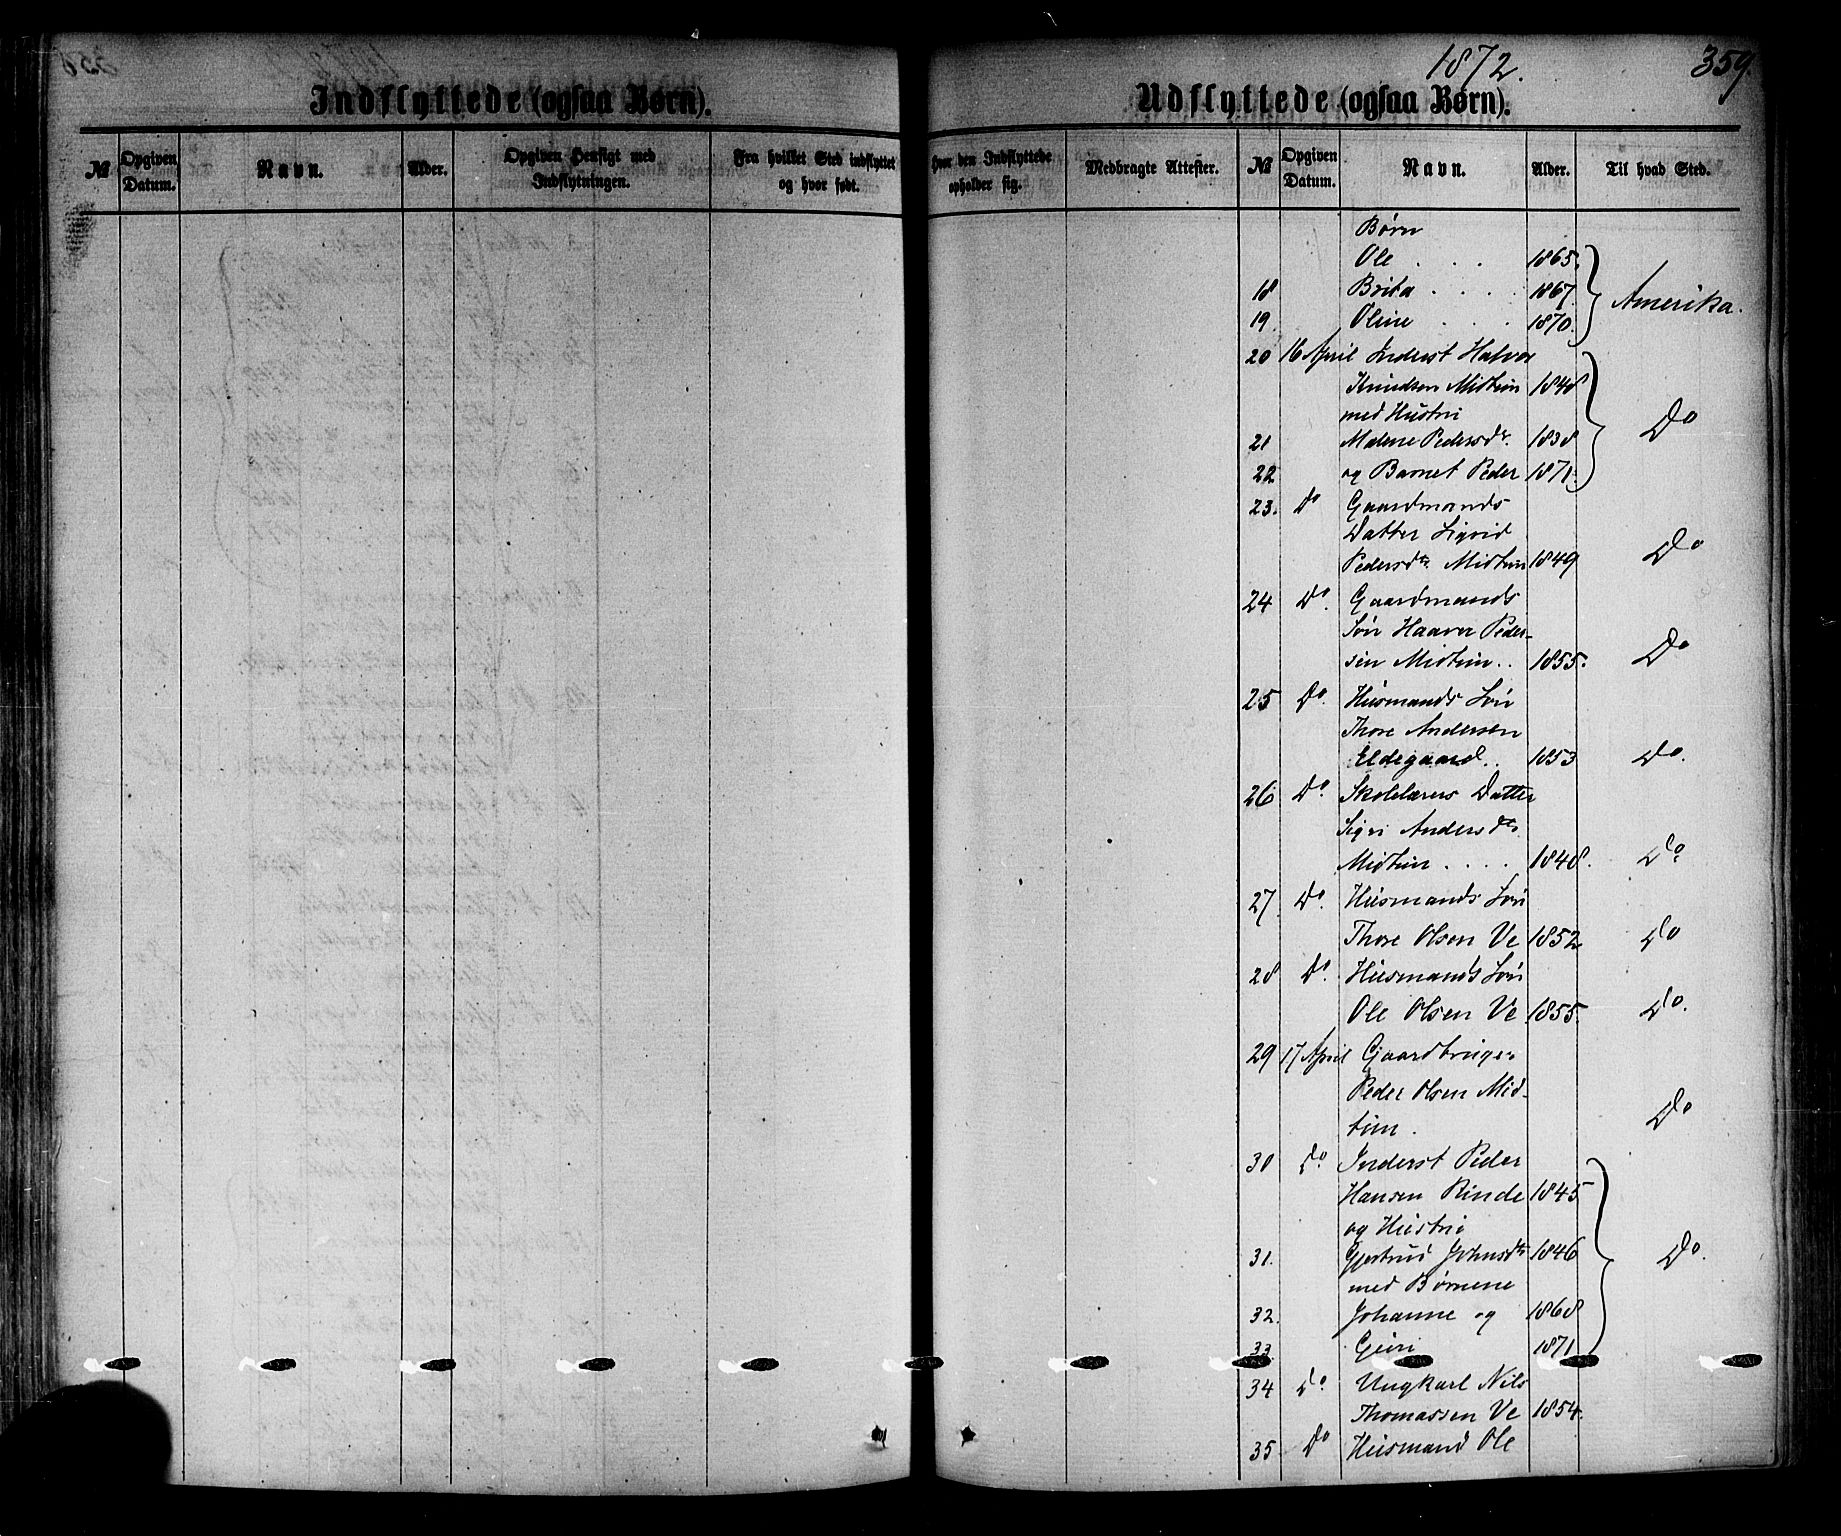 1872. 359.
Indflyttede (ogsaa Børn). Udflyttede (ogsaa Børn).
№ Opgiven Datum. Navn. Alder. Opgiven Hensigt med Indflytningen. Fra hvilket Sted indflyttet og hvor født. Hvor den Indflyttede opholder sig. Medbragte Attester. № Opgiven Datum. Navn. Alder. Til hvad Sted.
Børn
Ole . . . 1865.
18 Brita . . . 1867. Amerika.
19. Oline . . . 1870.
20 16 April Inderst Halvor
Knudsen Midtun 1848
med Hustru Do
21 Malene Pedersdr. 1838
22 og Barnet Peder 1871.
23. Do Gaardmands
Datter Sigrid
Pedersdtr Midtun 1849 Do
24 Do. Gaardmands
Søn Haaver Peder-
sen Midtun . . 1855. Do
25 Do. Husmands Søn
Thore Andersen
Eldegaard . . 1853 Do.
26 Do. Skolelærers Datter
Sigri Andersdtr
Midtun . . . . 1848. Do.
27. Do. Husmands Søn
Thore Olsen Ve 1852 Do
28 Do. Husmands Søn
Ole Olsen Ve 1855. Do.
29 17 April Gaardbruger
Peder Olsen Mid-
tun . Do
30 Do. Inderst Peder
Hansen Rinde 1845
og Hustru
31. Gjertrud Johnsdtr 1846 Do.
med Børnene
32. Johanne og 1868
33. Guri 1871
34 Do. Ungkarl Nils
Thomassen Ve 1854.
35 Do Husmand Ole